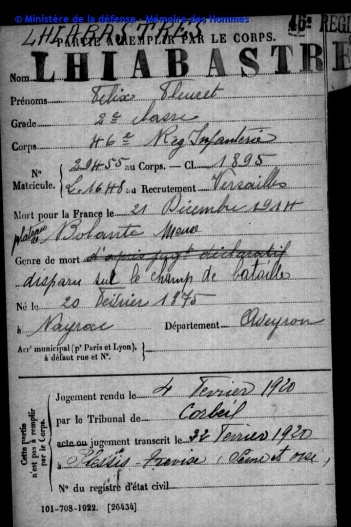 © Ministère de la défense - Mémoire des Hommes
LHIABASTRES
PARTIE À REMPLIR PAR LE CORPS.
46e REGI
Nom LHIABASTRE
Prénoms Félix Fleuret
Grade 2e classe
Corps 46e Reg Infanterie
N° Matricule. 29455 au Corps. — Cl. 1895
L. 1648 au Recrutement Versailles
Mort pour la France le 21 Décembre 1914
à plateau de Bolante Meuse
Genre de mort d'après jugt déclaratif
disparu sur le champ de bataille
Né le 20 Février 1875
à Nayrac Département Aveyron
Arrt municipal (pr Paris et Lyon), à défaut rue et N°.
Cette partie n'est pas à remplir par le Corps.
Jugement rendu le 4 Fevrier 1920
par le Tribunal de Corbeil
acte ou jugement transcrit le 22 Fevrier 1920
à Plessis-Trevise, Seine et oise,
N° du registre d'état civil
101-708-1922. [26434]